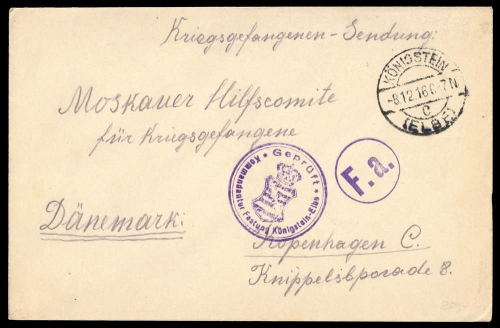 Kriegsgefangenen-Sendung.
KÖNIGSTEIN
-8.12.16.6-7N
c
(ELBE)
Moskauer Hilfscomite
für Kriegsgefangene
Geprüft
Kommandantur Festung Königstein-Elbe
F. a.
Dänemark:
Kopenhagen C.
Knippelsbporade 8.